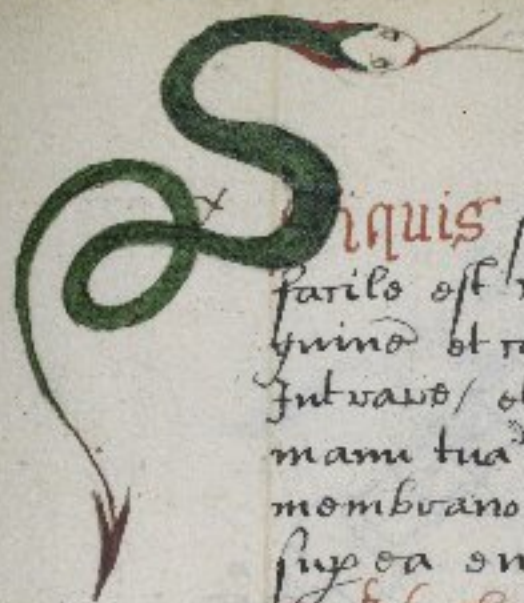 Siquis
facile est
guinē et
Intrare / et
manu tua
membrano
sup ea en